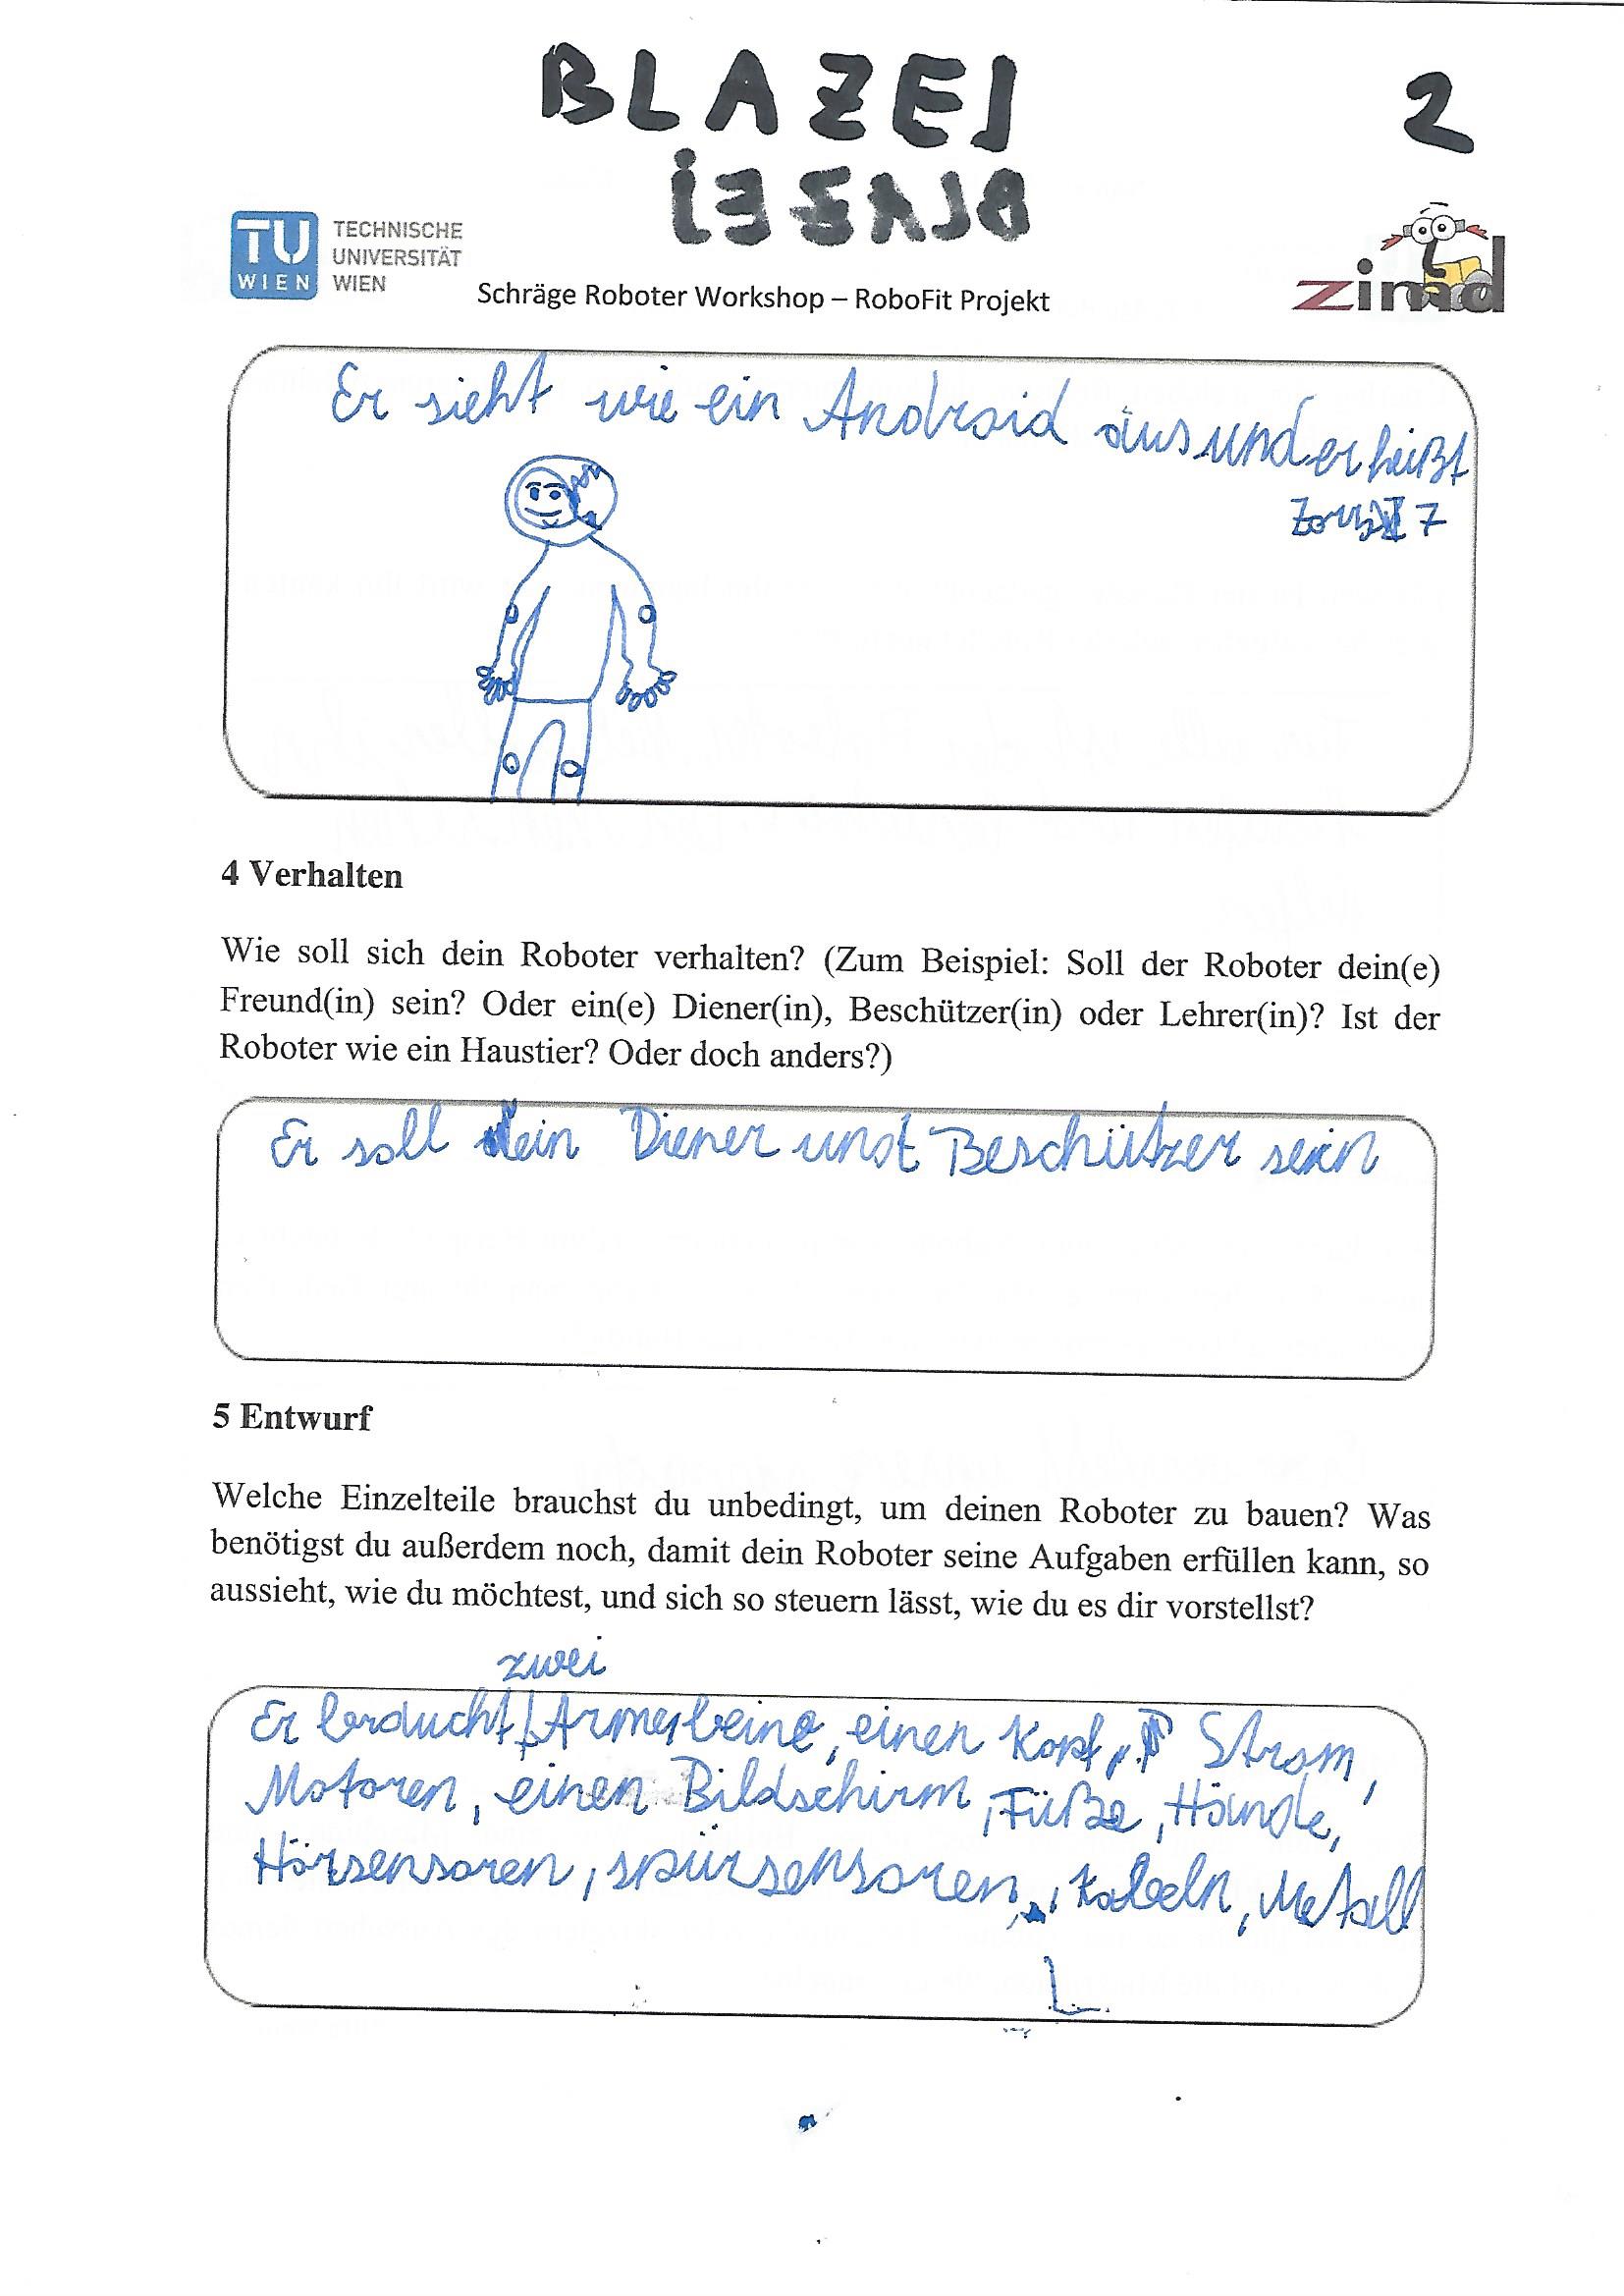 BLAZEJ
2
BLAZEj
TU
WIEN
TECHNISCHE
UNIVERSITÄT
WIEN
Schräge Roboter Workshop – RoboFit Projekt
zimd
Er sieht wie ein Android aus und er heißt
7
4 Verhalten
Wie soll sich dein Roboter verhalten? (Zum Beispiel: Soll der Roboter dein(e)
Freund(in) sein? Oder ein(e) Diener(in), Beschützer(in) oder Lehrer(in)? Ist der
Roboter wie ein Haustier? Oder doch anders?)
Er soll ein Diener und Beschützer sein
5 Entwurf
Welche Einzelteile brauchst du unbedingt, um deinen Roboter zu bauen? Was
benötigst du außerdem noch, damit dein Roboter seine Aufgaben erfüllen kann, so
aussieht, wie du möchtest, und sich so steuern lässt, wie du es dir vorstellst?
zwei
Er braucht Arme, beine, einen Kopf, Strom,
Motoren, einen Bildschirm, Füße, Hände,
Hörsensoren, spürsensoren, Kabeln, Metall